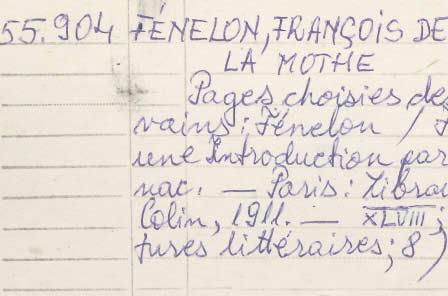 55.904 FÉNELON, FRANÇOIS DE
LA MOTHE
Pages choisies des
vains: Fénelon /
une Introduction par
nac. — Paris: Librai
Colin, 1911. — XLVIII;
tures littéraires; 8)